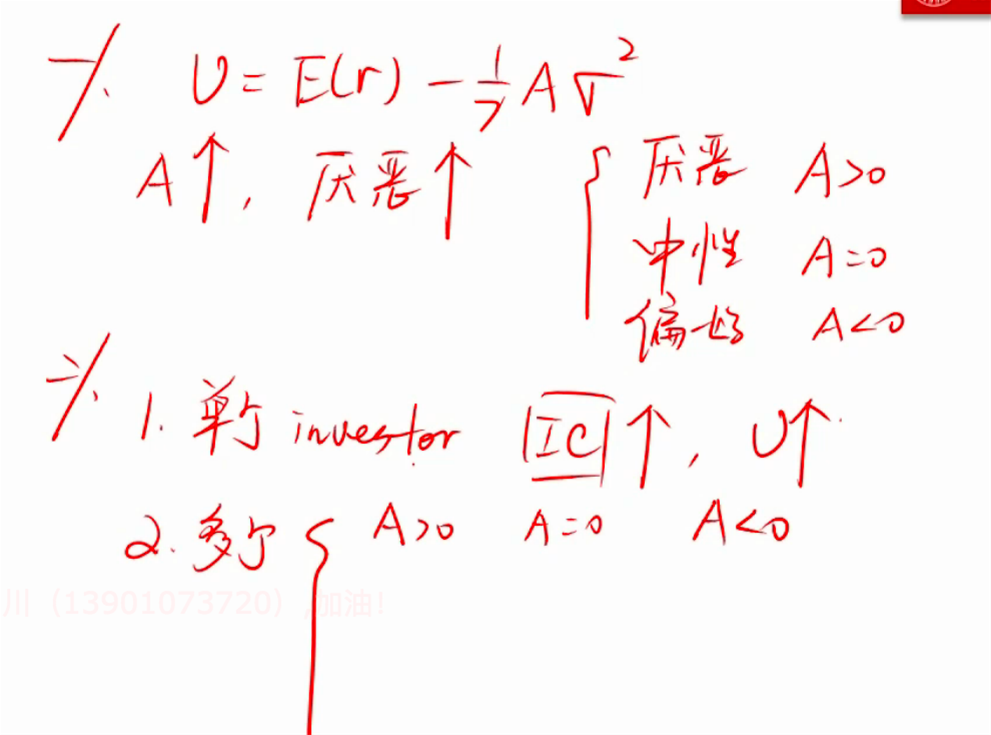 一、 U = E(r) - 1/2 A σ²
A↑, 厌恶↑
{ 厌恶 A>0
中性 A=0
偏好 A<0
二、 1. 单个 investor |IC|↑, U↑
2. 多个 { A>0 A=0 A<0
川（13901073720）,加油！